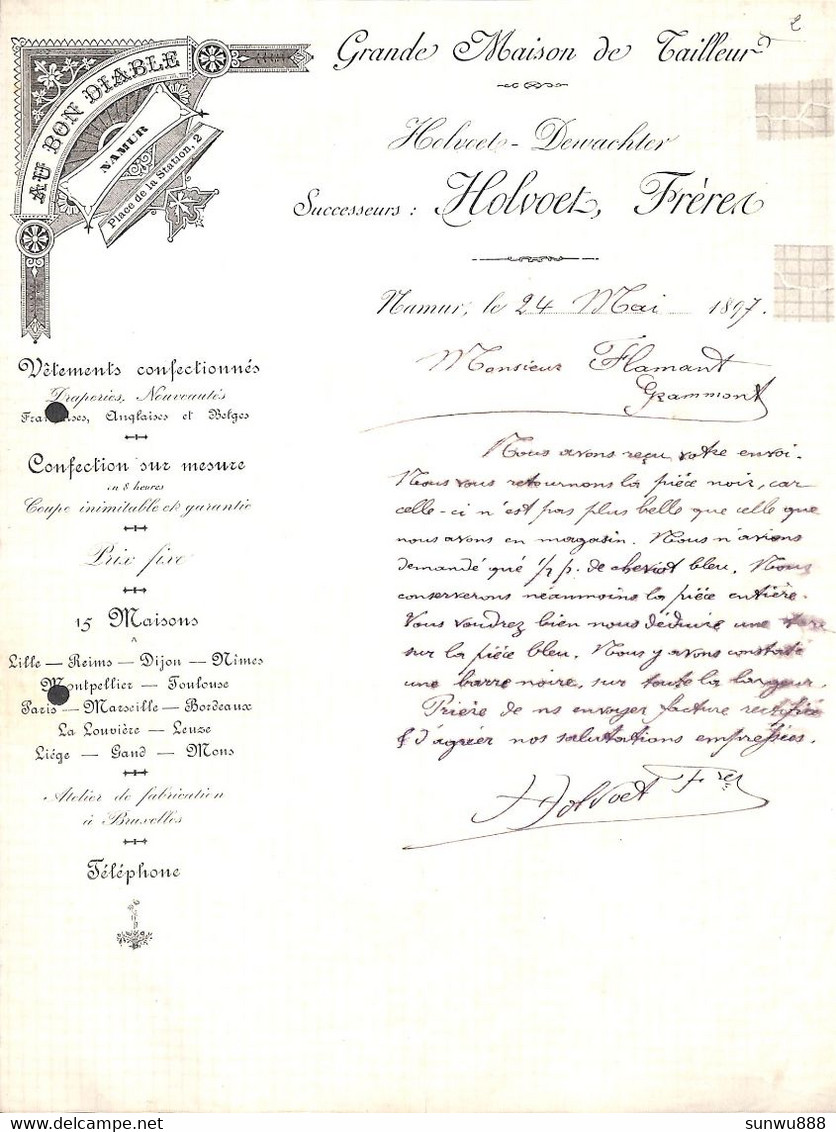 AU BON DIABLE
NAMUR
Place de la Station, 2
Grande Maison de Tailleurs
Holvoet-Dewachter
Successeurs : Holvoet, Frères
Namur, le 24 Mai 1897.
Monsieur Flamant
Grammont
Vêtements confectionnés
Draperies, Nouveautés
Françaises, Anglaises et Belges
Confection sur mesure
en 8 heures
Coupe inimitable et garantie
Prix fixe
15 Maisons
Lille — Reims — Dijon — Nimes
Montpellier — Toulouse
Paris — Marseille — Bordeaux
La Louvière — Leuze
Liége — Gand — Mons
Atelier de fabrication
à Bruxelles
Téléphone
Nous avons reçu votre envoi.
Nous vous retournons la pièce noir, car
celle-ci n'est pas plus belle que celle que
nous avons en magasin. Nous n'avions
demandé qué 1/2 p. de cheviot bleu. Nous
conserverons néanmoins la pièce entière.
Vous voudrez bien nous déduire une
sur la pièce bleu. Nous y avons constaté
une barre noire, sur toute la largeur.
Prière de ns envoyer facture rectifiée
& d'agréer nos salutations empressées.
Holvoet Fres
sunwu888